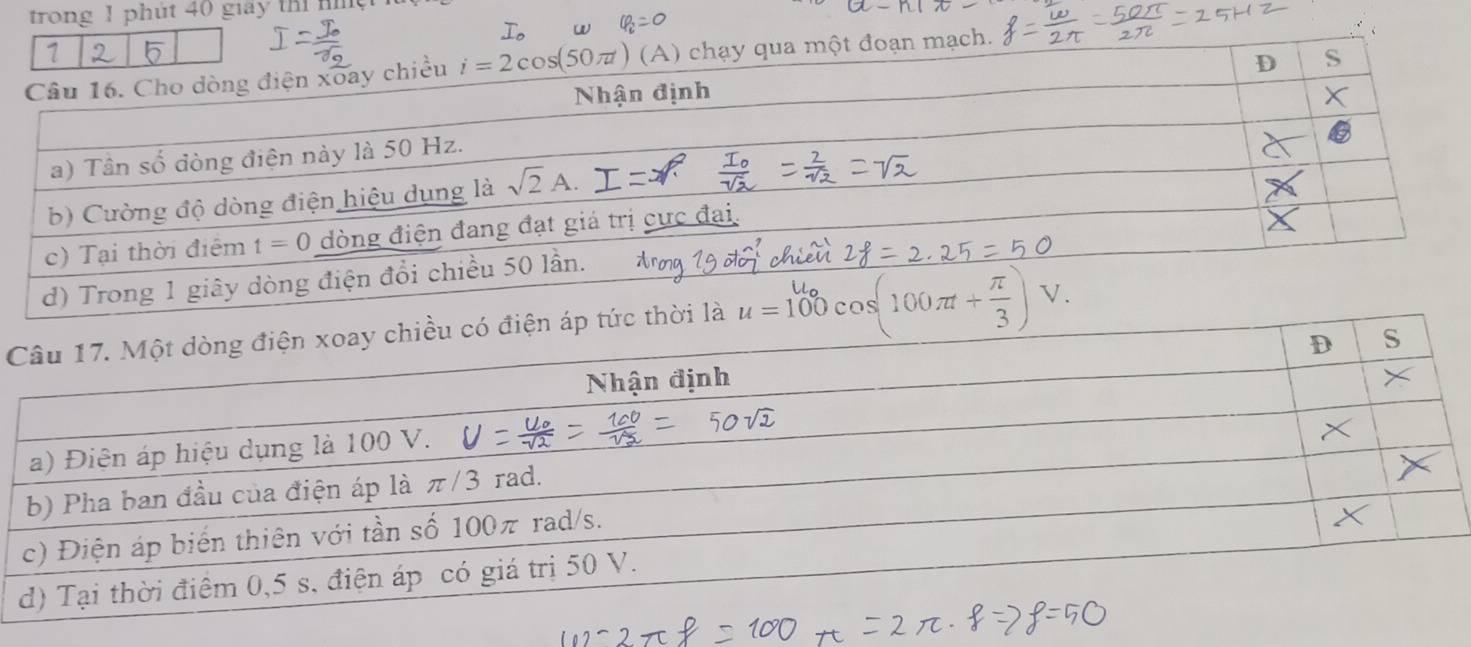 trong 1 phút 40 giây thì
1 2 5
I = I₀/√2
I₀ ω φᵢ=0
f = ω/2π = 50π/2π = 25Hz
Câu 16. Cho dòng điện xoay chiều i = 2cos(50πt) (A) chạy qua một đoạn mạch.
Nhận định Đ S
a) Tần số dòng điện này là 50 Hz. X
b) Cường độ dòng điện hiệu dụng là √2 A. I = I₀/√2 = 2/√2 = √2 X
c) Tại thời điểm t = 0 dòng điện đang đạt giá trị cực đại. X
d) Trong 1 giây dòng điện đổi chiều 50 lần. trong 1s đổi chiều 2f = 2.25 = 50 X
U₀
Câu 17. Một dòng điện xoay chiều có điện áp tức thời là u = 100 cos(100πt + π/3) V.
Nhận định Đ S
a) Điện áp hiệu dụng là 100 V. U = U₀/√2 = 100/√2 = 50√2 X
b) Pha ban đầu của điện áp là π/3 rad. X
c) Điện áp biến thiên với tần số 100π rad/s. X
d) Tại thời điểm 0,5 s, điện áp có giá trị 50 V. X
ω = 2πf = 100π = 2π.f => f=50